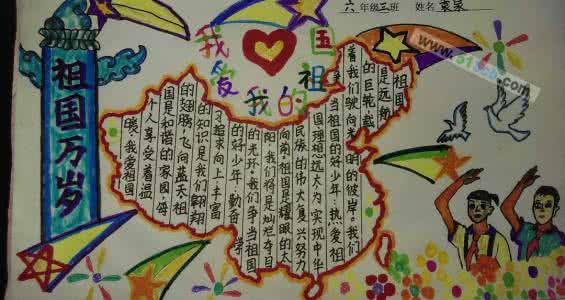 六年级三班 姓名
我爱我的祖国
祖国万岁
祖国
是远航
的巨轮，载
着我们驶向光明的彼岸，我们
争当祖国的好少年，热爱祖
国理想远大为实现中华
民族的伟大复兴努力
向前，祖国是耀眼的太
阳，我们将是灿烂夺目
的光环，我们争当祖国
的好少年，勤奋学
习追求向上丰富
的知识是我们翱翔
的翅膀，飞向蓝天祖
国是和谐的家园每
个人享受着温
暖，我爱祖国